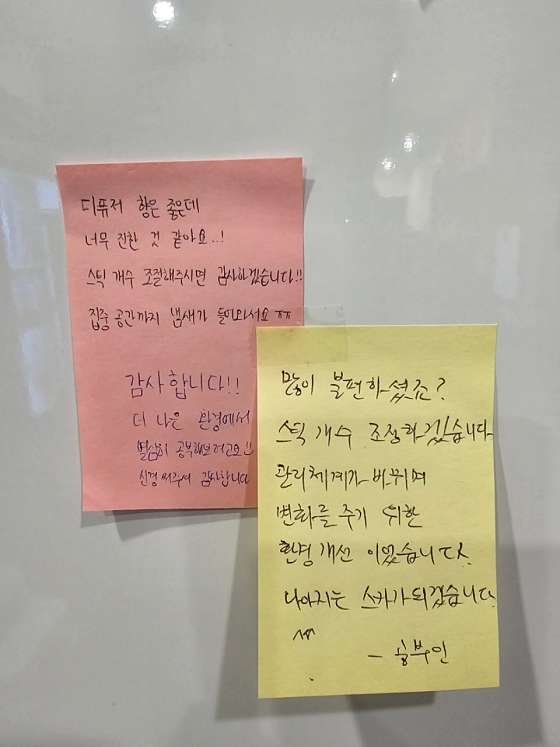 디퓨저 향은 좋은데
너무 진한 것 같아요..!
스틱 개수 조절해주시면 감사하겠습니다!!
집중 공간까지 냄새가 들어와서요 ㅠㅠ
감사합니다!!
더 나은 환경에서
열심히 공부해보려고요!!
신경 써주셔 감사합니다
많이 불편하셨죠?
스틱 개수 조정하겠습니다
관리체계가 바뀌며
변화를 주기 위한
환경 개선 이었습니다.
나아지는 스카가 되겠습니다.
^^
- 공부인